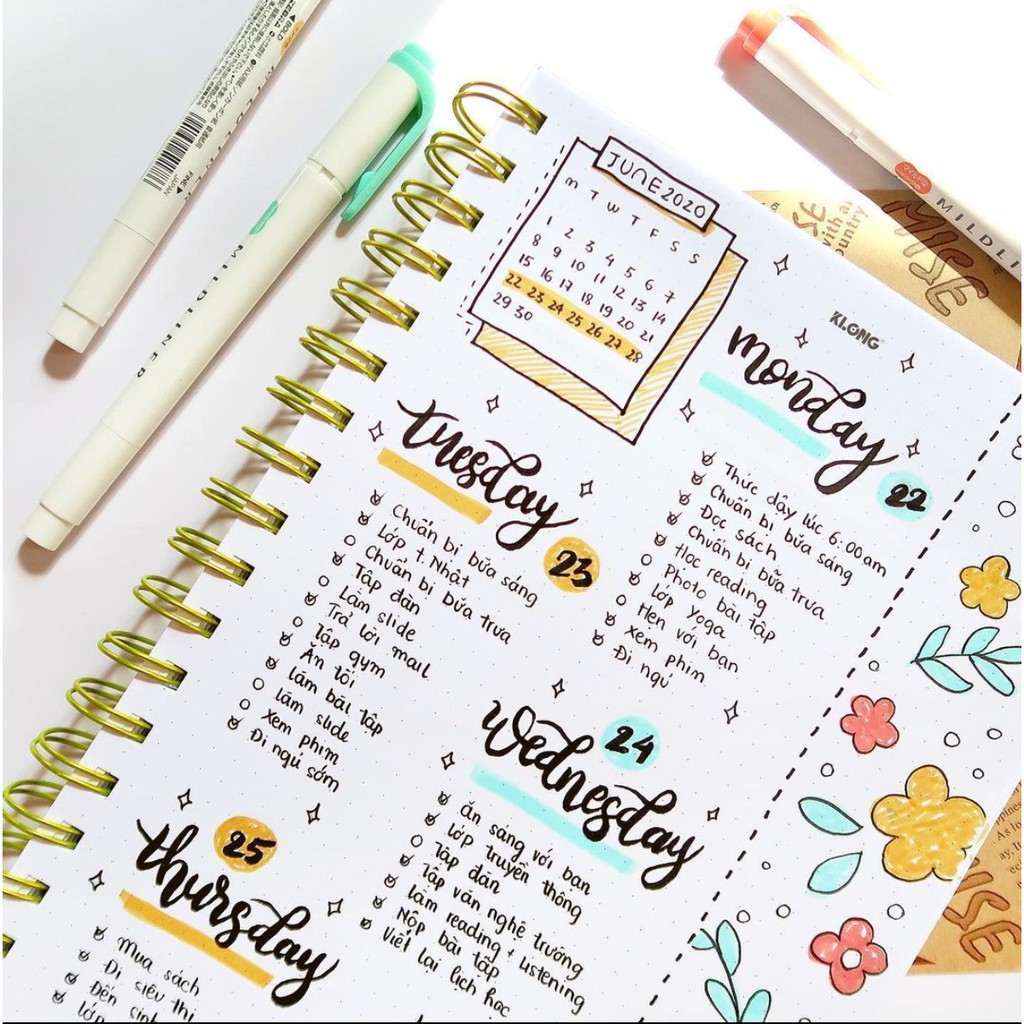 ZEBRA
BOLD
FINE
JAPAN
MILDLINER
MILDLINER
MILDLI
JUNE 2020
M T W T F S S
1 2 3 4 5 6 7
8 9 10 11 12 13 14
15 16 17 18 19 20 21
22 23 24 25 26 27 28
29 30
KLONG
monday
22
Thức dậy lúc 6:00am
Chuẩn bị bữa sáng
Đọc sách
Chuẩn bị bữa trưa
Học reading
Photo bài tập
Lớp yoga
Hẹn với bạn
Xem phim
Đi ngủ
Tuesday
23
Chuẩn bị bữa sáng
Lớp t. Nhật
Chuẩn bị bữa trưa
Tập đàn
Làm slide
Trả lời mail
Tập gym
Ăn tối
Làm bài tập
Làm slide
Xem phim
Đi ngủ sớm
Wednesday
24
Ăn sáng với bạn
Lớp truyền thông
Tập đàn
Tập văn nghệ trường
Làm reading + Listening
Nộp bài tập
Viết lại lịch học
thursday
25
Mua sách
Đi siêu thị
Đến sinh
Lớp
with an
Country